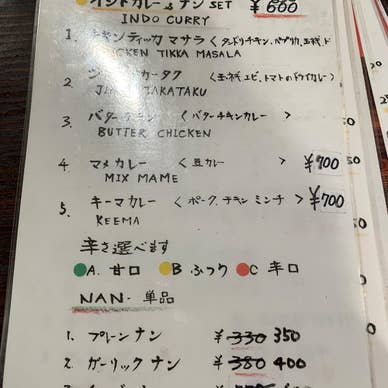 インドカレー & ナン SET ¥600
INDO CURRY
1. チキンティッカマサラ < タンドリチキン、パプリカ、玉ねぎ、ト
CHICKEN TIKKA MASALA
2. カータク < 玉ねぎ、エビ、トマトのドライカレー >
TAKATAKU
3. バターチキン < バターチキンカレー >
BUTTER CHICKEN
4 マメカレー < 豆カレー > ¥700
MIX MAME
5. キーマカレー < ポーク、チキン ミンチ > ¥700
KEEMA
辛さ選べます
A. 甘口 B ふつう C 辛口
NAN・単品
1. プレーンナン ¥ 330 350
2. ガーリック ナン ¥ 380 400